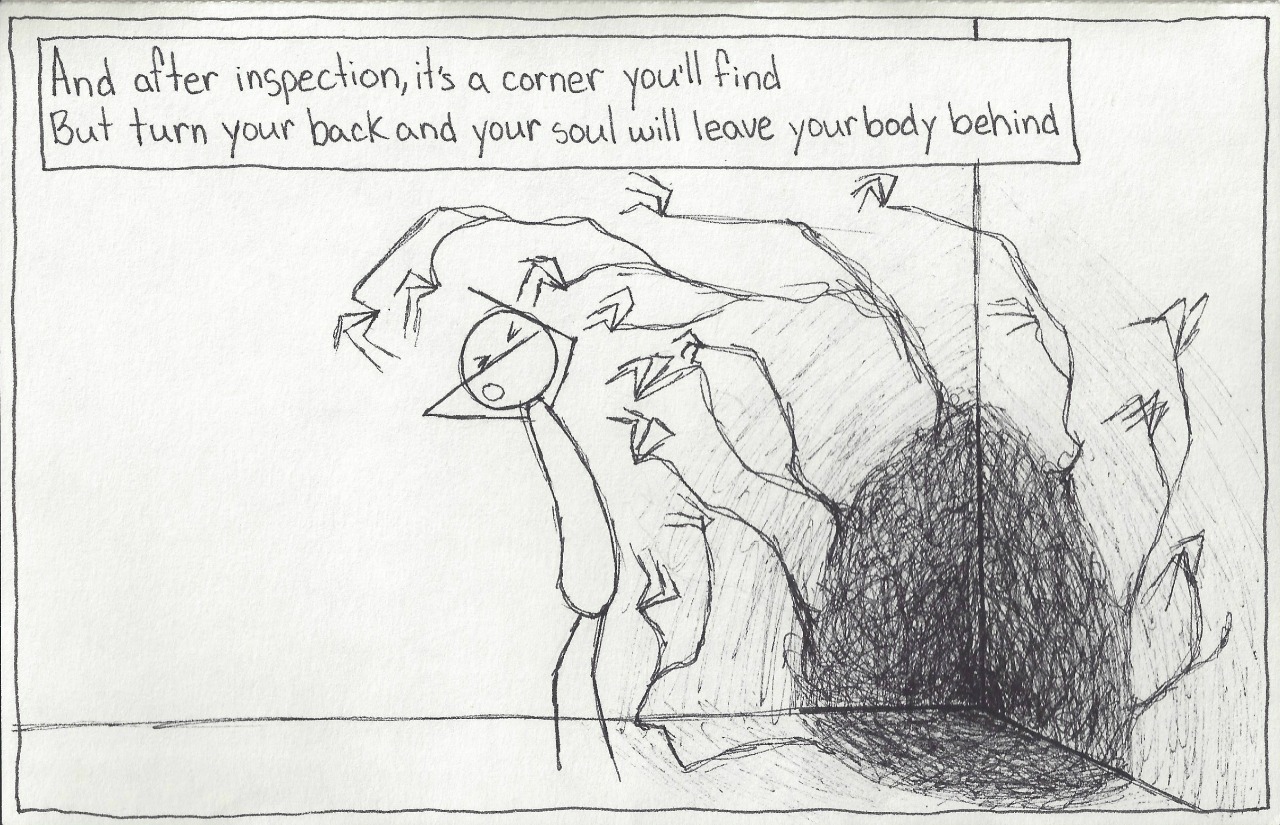 And after inspection, it's a corner you'll find
But turn your back and your soul will leave your body behind